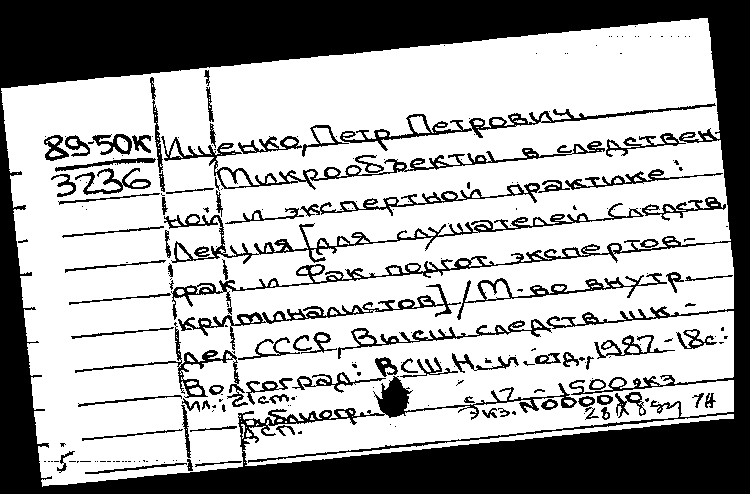 89-50К
3236
Ищенко, Петр Петрович.
Микрообъекты в следствен-
ной и экспертной практике:
Лекция [для слушателей Следств.
фак. и Фак. подгот. экспертов-
криминалистов] / М-во внутр.
дел СССР, Высш. следств. шк. -
Волгоград: ВСШ. Н.-и. отд., 1987. - 18 с.:
ил.; 21 см.
Библиогр.: с. 17. - 1500 экз.
ДСП. Экз. N000010.
5